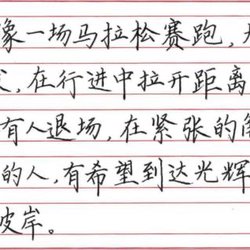 像一场马拉松赛跑，
，在行进中拉开距离
有人退场，在紧张的
的人，有希望到达光辉
彼岸。